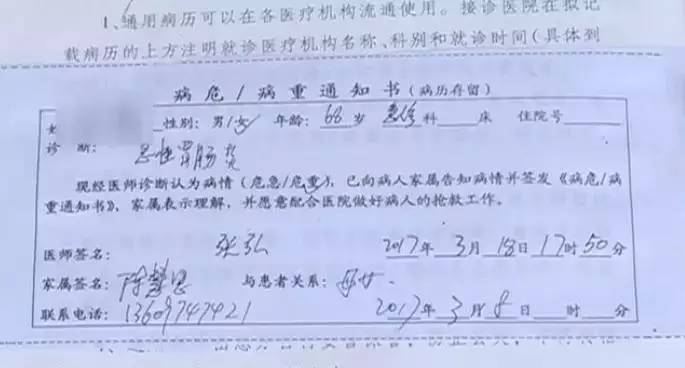 1、通用病历可以在各医疗机构流通使用。接诊医院在拟记
载病历的上方注明就诊医疗机构名称、科别和就诊时间(具体到
病危/病重通知书(病历存留)
性别:男/女 年龄:68岁 急诊科 床 住院号
诊断:急性胃肠炎
现经医师诊断认为病情(危急/危重),已向病人家属告知病情并签发《病危/病
重通知书》,家属表示理解,并愿意配合医院做好病人的抢救工作。
医师签名:张弘 2017年3月18日17时50分
家属签名:陈 与患者关系:母女
联系电话:13609747421 2017年3月18日 时 分